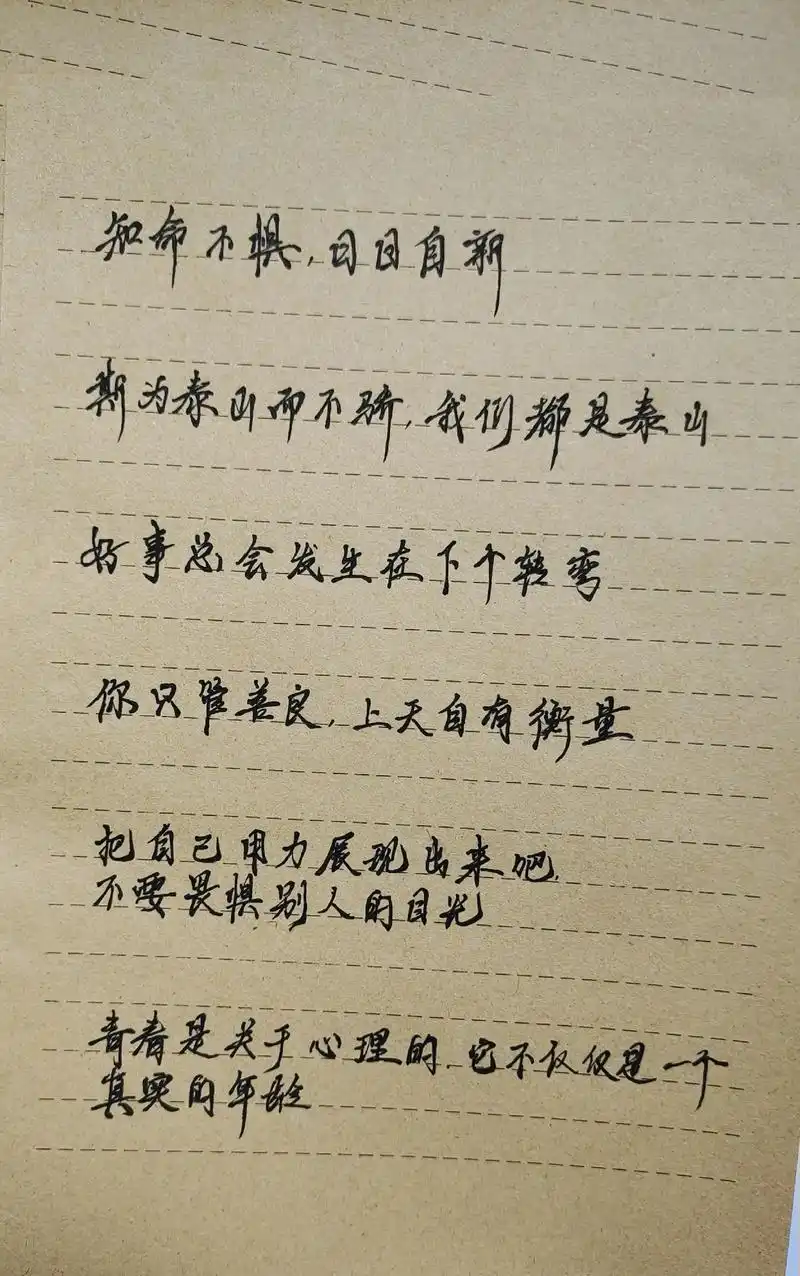 知命不惧,日日自新
期为泰山而不骄,我们都是泰山
好事总会发生在下个转弯
你只管善良,上天自有衡量
把自己用力展现出来吧.
不要畏惧别人的目光
青春是关于心理的.它不仅仅是一个
真实的年龄